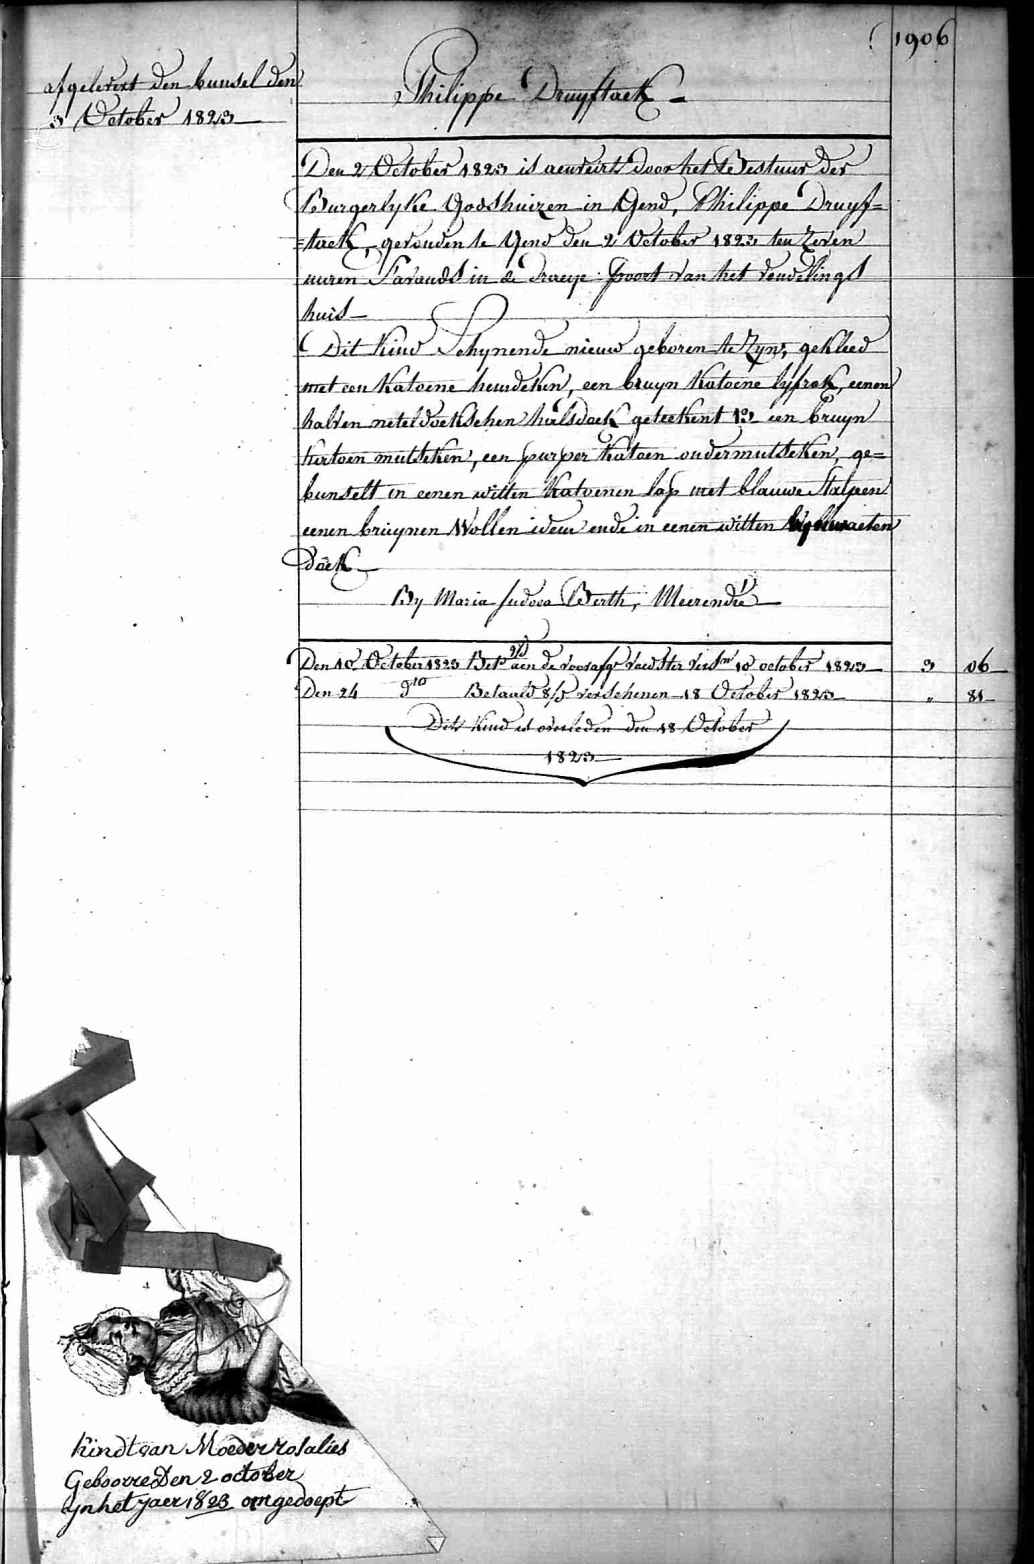 1906
afgelevert den bunsel den
3 October 1823
Philippe Druyftack
Den 2 October 1823 is aenveirt door het Bestuur der
Burgerlyke Godshuizen in Gend, Philippe Druyf=
=tack, gevonden te Gend den 2 October 1823 ten zeven
uuren s'avonds in de draeye poort van het vondelings
huis
Dit kind Schynende nieuw geboren te zyn, gekleed
met een katoene hemdeken, een bruyn katoene lyfrok, eenen
halven neteldoekschen halsdoek geteekent B een bruyn
katoen mutseken, een purper katoen ondermutseken, ge=
bunselt in eenen witten katoenen lap met blauwe Stalpen
eenen bruynen Wollen idem ende in eenen witten
doek
By Maria Judoca Berth, Meerendré
Den 10 October 1823 Bet. aen de voorsz. voedster verst. 10 october 1823 3 06
Den 24 do Betaald 8/5 verschenen 18 October 1823 „ 81
Dit kind is overleden den 18 October
1823
kindt van Moeder rosalies
Geboorre Den 2 october
yn het jaer 1823 omgedoept